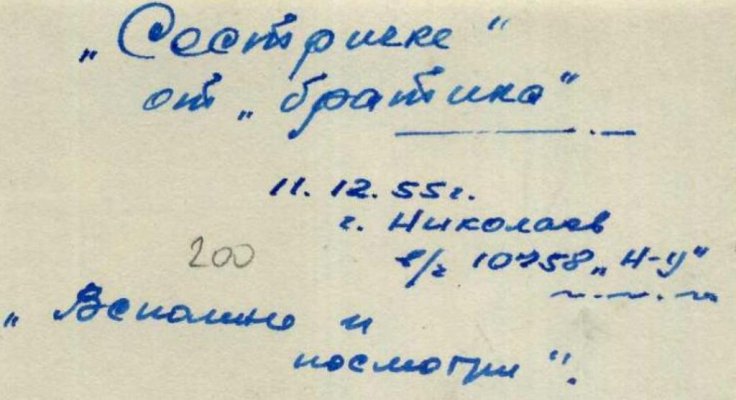 „Сестричке“
от „братика“
11.12.55г.
г. Николаев
200
в/ч 10758 „Н-У“
„Вспомни и
посмотри“.